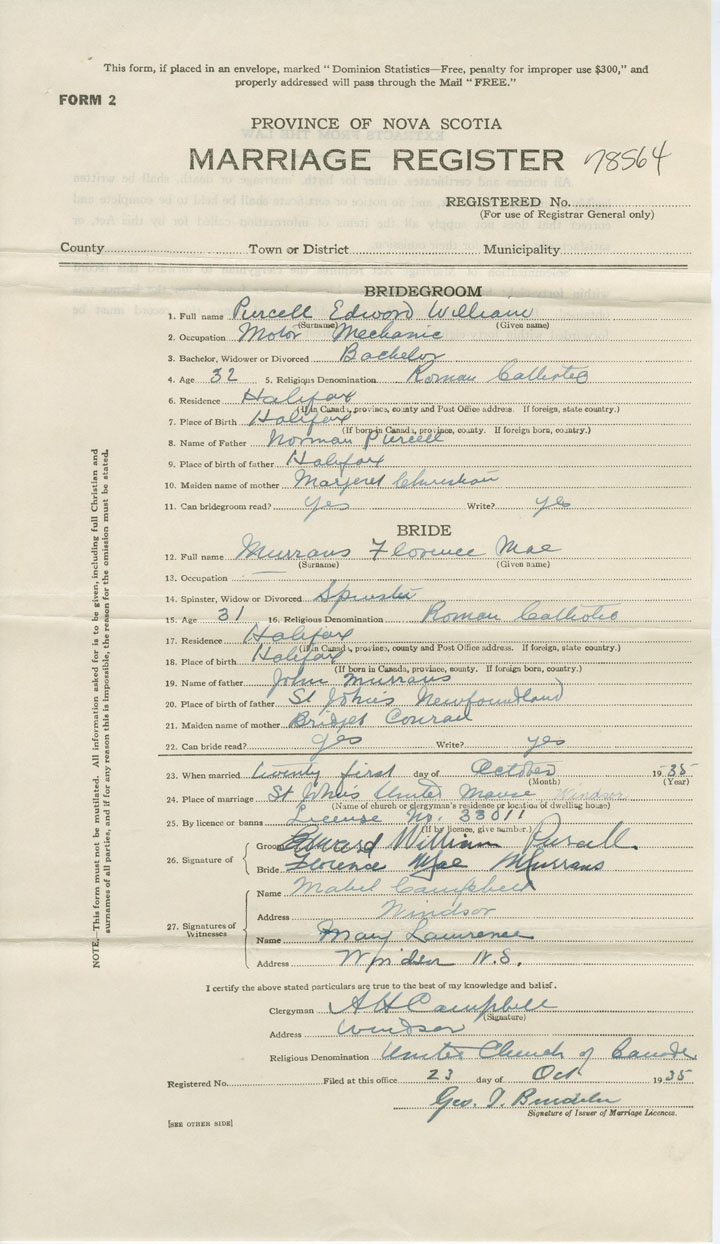 This form, if placed in an envelope, marked “ Dominion Statistics—Free, penalty for improper use $300,” and
properly addressed will pass through the Mail “ FREE.”
FORM 2
PROVINCE OF NOVA SCOTIA
MARRIAGE REGISTER 78564
REGISTERED No.
(For use of Registrar General only)
County Town or District Municipality
BRIDEGROOM
1. Full name Purcell Edward William
(Surname) (Given name)
2. Occupation Motor Mechanic
3. Bachelor, Widower or Divorced Bachelor
4. Age 32 5. Religious Denomination Roman Catholic
6. Residence Halifax
(If in Canada, province, county and Post Office address. If foreign, state country.)
7. Place of Birth Halifax
(If born in Canada, province, county. If foreign born, country.)
8. Name of Father Norman Purcell
9. Place of birth of father Halifax
10. Maiden name of mother Margeret Christian
11. Can bridegroom read? yes Write? yes
BRIDE
12. Full name Murrans Florence Mae
(Surname) (Given name)
13. Occupation —
14. Spinster, Widow or Divorced Spinster
15. Age 31 16. Religious Denomination Roman Catholic
17. Residence Halifax
(If in Canada, province, county and Post Office address. If foreign, state country.)
18. Place of birth Halifax
(If born in Canada, province, county. If foreign born, country.)
19. Name of father John Murrans
20. Place of birth of father St John's Newfoundland
21. Maiden name of mother Bridget Conrad
22. Can bride read? yes Write? yes
23. When married twenty first day of October 1935
(Month) (Year)
24. Place of marriage St John's United Manse Windsor
(Name of church or clergyman's residence or location of dwelling house)
25. By licence or banns License No. 33011
(If by licence, give number.)
26. Signature of Groom Edward William Purcell
Bride Florence Mae Murrans
27. Signatures of Witnesses
Name Mabel Campbell
Address Windsor
Name Mary Lawrence
Address Windsor N.S.
I certify the above stated particulars are true to the best of my knowledge and belief.
Clergyman A H Campbell
(Signature)
Address Windsor
Religious Denomination United Church of Canada
Registered No. Filed at this office 23 day of Oct 1935
Geo. 
Signature of Issuer of Marriage Licences.
[SEE OTHER SIDE]
NOTE.—This form must not be mutilated. All information asked for is to be given, including full Christian and
surnames of all parties, and if for any reason this is impossible, the reason for the omission must be stated.